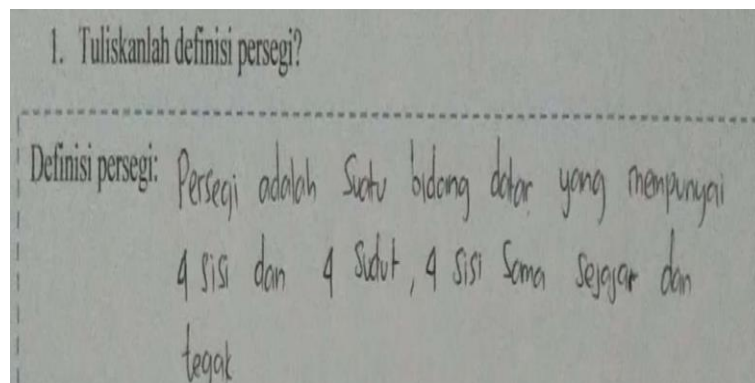 1. Tuliskanlah definisi persegi?
Definisi persegi: Persegi adalah Suatu bidang datar yang mempunyai
4 sisi dan 4 sudut, 4 sisi sama sejajar dan
tegak